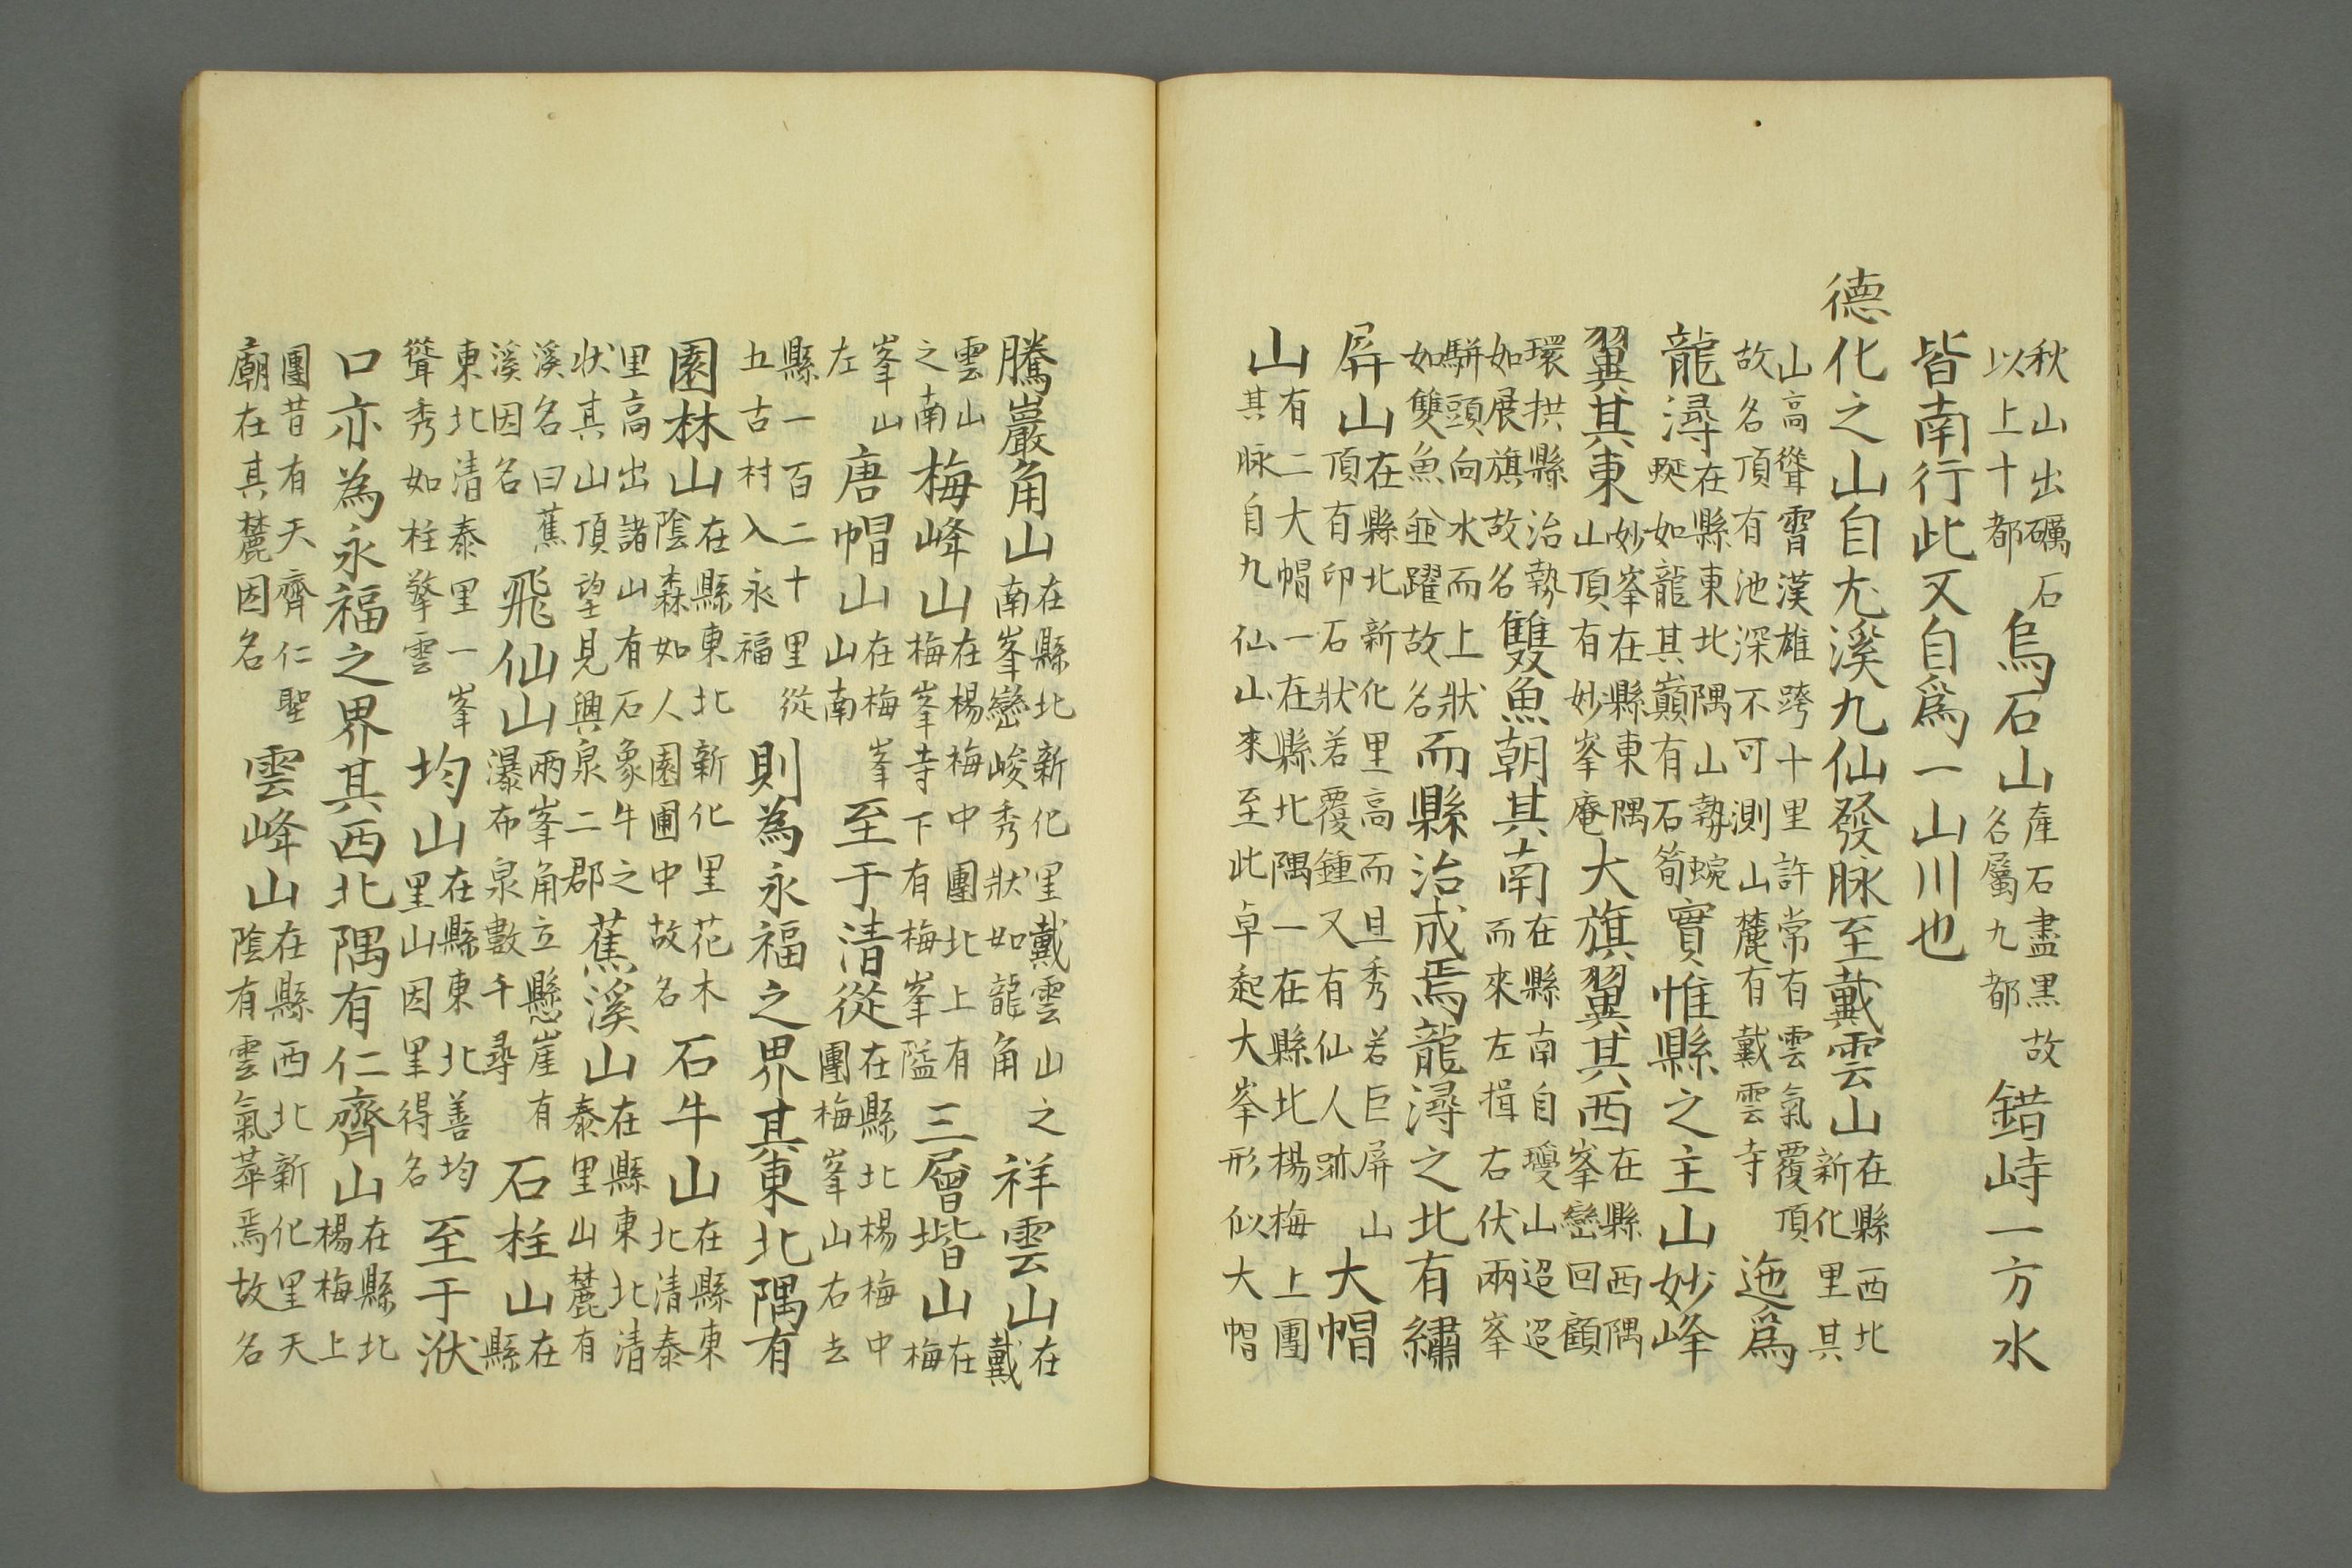 秋山出礪石以上十都烏石山産石盡黒故名屬九都錯峙一方水
皆南行此又自爲一山川也
德化之山自尤溪九仙發脉至戴雲山在縣西北新化里其
山高聳霄漢雄跨十里許常有雲氣覆頂故名頂有池深不可測山麓有戴雲寺迤爲
龍潯在縣東北隅山勢蜿蜒如龍其巔有石筍實惟縣之主山妙峰
翼其東妙峯在縣東隅山頂有妙峯庵大旗翼其西在縣西隅峯巒回顧
環拱縣治勢如展旗故名雙魚朝其南在縣南自瓊山迢迢而來左揖右伏兩峯
駢頭向水而上狀如雙魚並躍故名而縣治成焉龍潯之北有繡
屏山在縣北新化里高而且秀若巨屏山頂有印石狀若覆鍾又有仙人跡大帽
山有二大帽一在縣北隅一在縣北楊梅上團其脉自九仙山來至此卓起大峯形似大帽
騰巖角山在縣北新化里戴雲山之南峯巒峻秀狀如龍角祥雲山在戴
雲山之南梅峰山在楊梅中團北上有梅峯寺下有梅峯隘三層堦山在梅
峯山左唐帽山在梅峯山南至于清從在縣北楊梅中團梅峯山右去
縣一百二十里從五古村入永福則為永福之界其東北隅有
園林山在縣東北新化里花木陰森如人園圃中故名石牛山在縣東北清泰
里高出諸山有石象牛之狀其山頂望見興泉二郡蕉溪山在縣東北清泰里山麓有
溪名曰蕉溪因名飛仙山兩峯角立懸崖有瀑布泉數千尋石柱山在縣
東北清泰里一峯聳秀如柱擎雲均山在縣東北善均里山因里得名至于洑
口亦為永福之界其西北隅有仁齊山在縣北楊梅上
團昔有天齊仁聖廟在其麓因名雲峰山在縣西北新化里天陰有雲氣萃焉故名